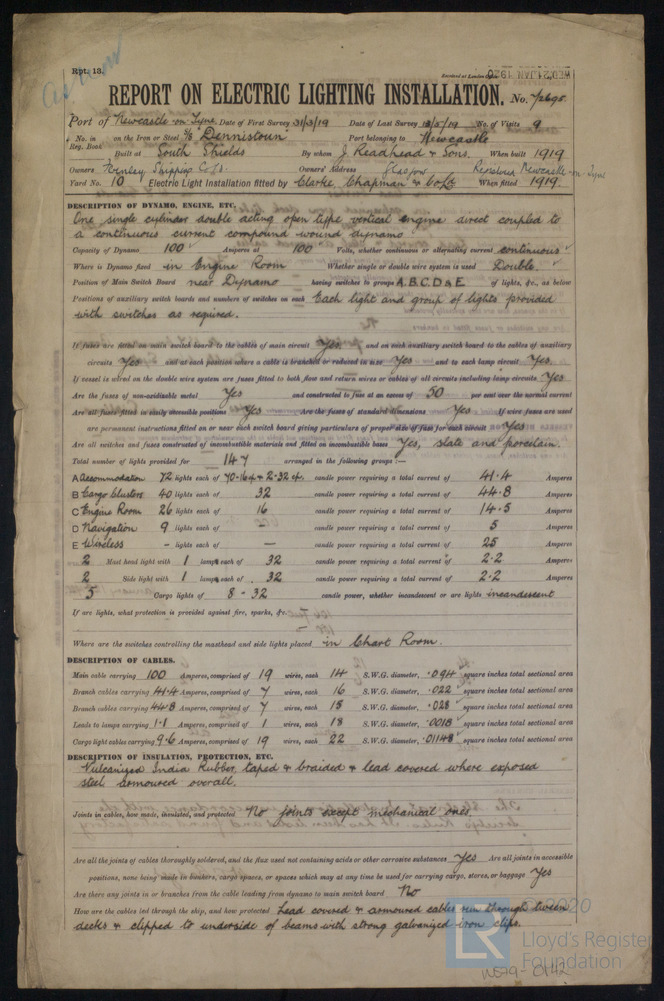 Rpt. 13.
Received at London Office WED 21 JAN 1920
REPORT ON ELECTRIC LIGHTING INSTALLATION. No. 72695
Port of Newcastle-on-Tyne Date of First Survey 31/3/19 Date of Last Survey No. of Visits 9
No. in Reg. Book on the Iron or Steel S/S "Dennistoun" Port belonging to Newcastle
Built at South Shields By whom J. Readhead & Sons. When built 1919
Owners Shipping Co Ld. Owners' Address Glasgow Newcastle-on-Tyne
Yard No. 10 Electric Light Installation fitted by Clarke, Chapman & Co Ld When fitted 1919.
DESCRIPTION OF DYNAMO, ENGINE, ETC.
One single cylinder double acting open type vertical engine direct coupled to
a continuous current compound wound dynamo
Capacity of Dynamo 100 Amperes at 100 Volts, whether continuous or alternating current continuous
Where is Dynamo fixed in Engine Room Whether single or double wire system is used Double.
Position of Main Switch Board near Dynamo having switches to groups A, B, C, D & E of lights, &c., as below
Positions of auxiliary switch boards and numbers of switches on each Each light and group of lights provided
with switches as required.
If fuses are fitted on main switch board to the cables of main circuit Yes and on each auxiliary switch board to the cables of auxiliary
circuits Yes and at each position where a cable is branched or reduced in size Yes and to each lamp circuit Yes.
If vessel is wired on the double wire system are fuses fitted to both flow and return wires or cables of all circuits including lamp circuits Yes
Are the fuses of non-oxidizable metal Yes and constructed to fuse at an excess of 50 per cent over the normal current
Are all fuses fitted in easily accessible positions Yes Are the fuses of standard dimensions Yes If wire fuses are used
are permanent instructions fitted on or near each switch board giving particulars of proper size of fuse for each circuit Yes
Are all switches and fuses constructed of incombustible materials and fitted on incombustible bases Yes, slate and porcelain.
Total number of lights provided for 147 arranged in the following groups :—
A Accommodation 72 lights each of 70-16 cp & 2-32 cp. candle power requiring a total current of 41.4 Amperes
B Cargo Clusters 40 lights each of 32 candle power requiring a total current of 44.8 Amperes
C Engine Room 26 lights each of 16 candle power requiring a total current of 14.5 Amperes
D Navigation 9 lights each of — candle power requiring a total current of 5 Amperes
E Wireless - lights each of — candle power requiring a total current of 25 Amperes
2 Mast head light with 1 lamps each of 32 candle power requiring a total current of 2.2 Amperes
2 Side light with 1 lamps each of 32 candle power requiring a total current of 2.2 Amperes
5 Cargo lights of 8 - 32 candle power, whether incandescent or arc lights incandescent
If arc lights, what protection is provided against fire, sparks, &c.
Where are the switches controlling the masthead and side lights placed in Chart Room.
DESCRIPTION OF CABLES.
Main cable carrying 100 Amperes, comprised of 19 wires, each 14 S.W.G. diameter, .094 square inches total sectional area
Branch cables carrying 41.4 Amperes, comprised of 7 wires, each 16 S.W.G. diameter, .022 square inches total sectional area
Branch cables carrying 44.8 Amperes, comprised of 7 wires, each 15 S.W.G. diameter, .028 square inches total sectional area
Leads to lamps carrying 1.1 Amperes, comprised of 1 wires, each 18 S.W.G. diameter, .0018 square inches total sectional area
Cargo light cables carrying 9.6 Amperes, comprised of 19 wires, each 22 S.W.G. diameter, .01148 square inches total sectional area
DESCRIPTION OF INSULATION, PROTECTION, ETC.
Vulcanized India Rubber, taped & braided & lead covered where exposed
steel armoured overall.
Joints in cables, how made, insulated, and protected No joints except mechanical ones.
Are all the joints of cables thoroughly soldered, and the flux used not containing acids or other corrosive substances Yes Are all joints in accessible
positions, none being made in bunkers, cargo spaces, or spaces which may at any time be used for carrying cargo, stores, or baggage Yes
Are there any joints in or branches from the cable leading from dynamo to main switch board No
How are the cables led through the ship, and how protected Lead covered & armoured cables run through tween
decks & clipped to underside of beams with strong galvanized iron clips.
© 2020
LR
Lloyd's Register
Foundation
W579-0142